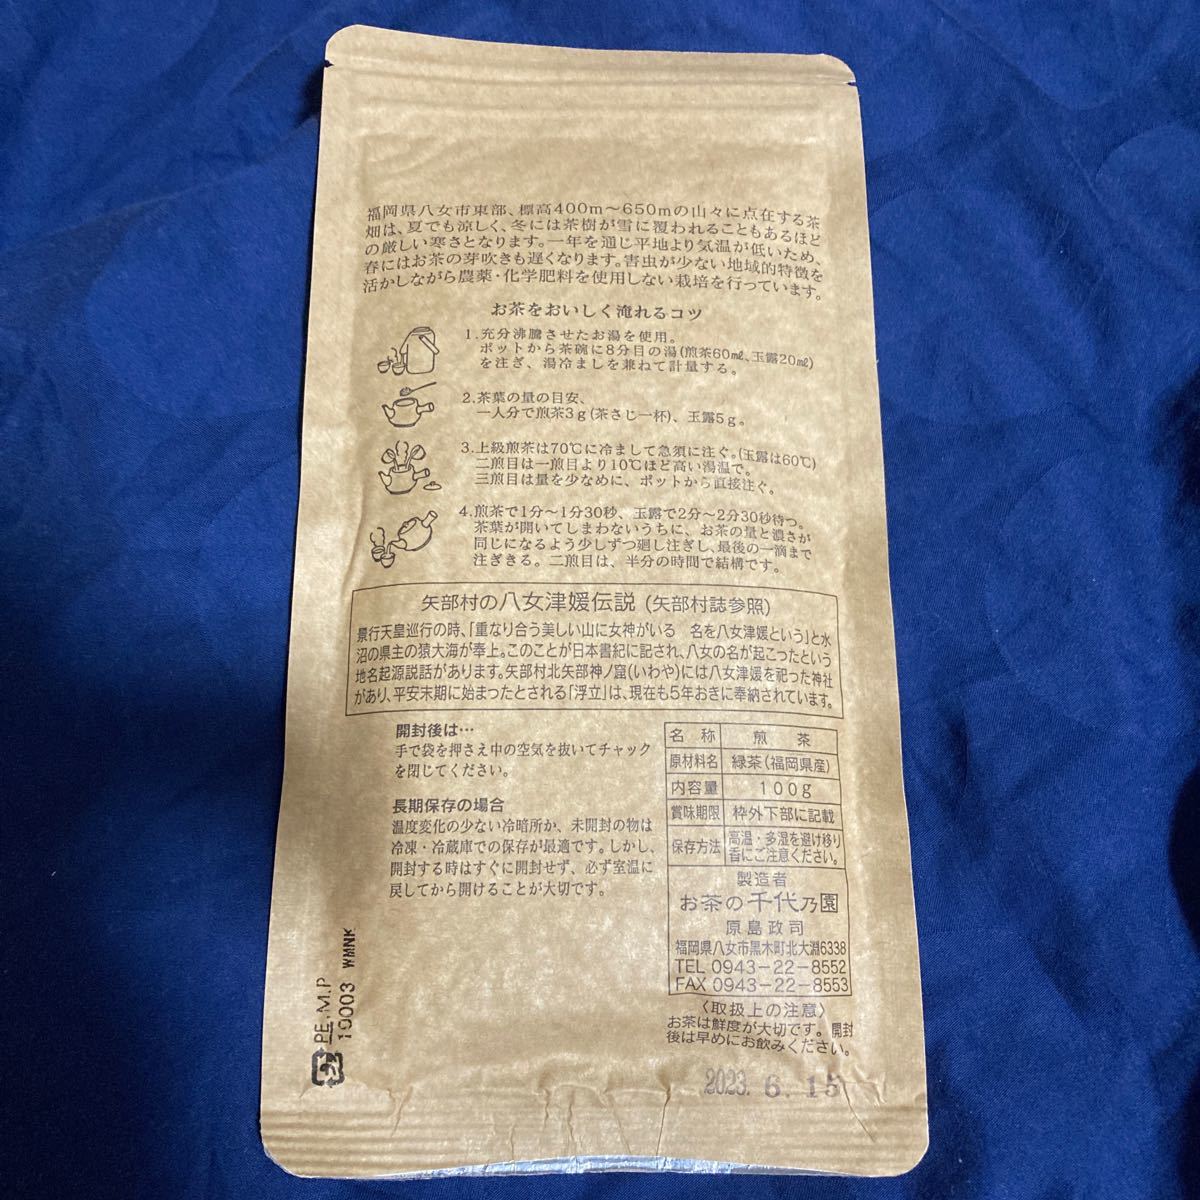 福岡県八女市東部、標高400m〜650mの山々に点在する茶
畑は、夏でも涼しく、冬には茶樹が雪に覆われることもあるほど
の厳しい寒さとなります。一年を通じ平地より気温が低いため、
春にはお茶の芽吹きも遅くなります。害虫が少ない地域的特徴を
活かしながら農薬・化学肥料を使用しない栽培を行っています。
お茶をおいしく淹れるコツ
1.充分沸騰させたお湯を使用。
ポットから茶碗に8分目の湯(煎茶60㎖、玉露20㎖)
を注ぎ、湯冷ましを兼ねて計量する。
2.茶葉の量の目安、
一人分で煎茶3g(茶さじ一杯)、玉露5g。
3.上級煎茶は70℃に冷まして急須に注ぐ。(玉露は60℃)
二煎目は一煎目より10℃ほど高い湯温で。
三煎目は量を少なめに、ポットから直接注ぐ。
4.煎茶で1分〜1分30秒、玉露で2分〜2分30秒待つ。
茶葉が開いてしまわないうちに、お茶の量と濃さが
同じになるよう少しずつ廻し注ぎし、最後の一滴まで
注ぎきる。二煎目は、半分の時間で結構です。
矢部村の八女津媛伝説(矢部村誌参照)
景行天皇巡行の時、「重なり合う美しい山に女神がいる 名を八女津媛という」と水
沼の県主の猿大海が奉上。このことが日本書紀に記され、八女の名が起こったという
地名起源説話があります。矢部村北矢部神ノ窟(いわや)には八女津媛を祀った神社
があり、平安末期に始まったとされる「浮立」は、現在も5年おきに奉納されています。
開封後は…
手で袋を押さえ中の空気を抜いてチャック
を閉じてください。
長期保存の場合
温度変化の少ない冷暗所か、未開封の物は
冷凍・冷蔵庫での保存が最適です。しかし、
開封する時はすぐに開封せず、必ず室温に
戻してから開けることが大切です。
名称 煎茶
原材料名 緑茶(福岡県産)
内容量 100g
賞味期限 枠外下部に記載
保存方法 高温・多湿を避け移り
香にご注意ください。
製造者
お茶の千代乃園
原島政司
福岡県八女市黒木町北大淵6338
TEL 0943-22-8552
FAX 0943-22-8553
〈取扱上の注意〉
お茶は鮮度が大切です。開封
後は早めにお飲みください。
2023. 6. 15
PE.M.P
10003 WMNK